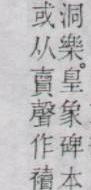 洞樂。皇象碑本
或从賣聲作𥜝